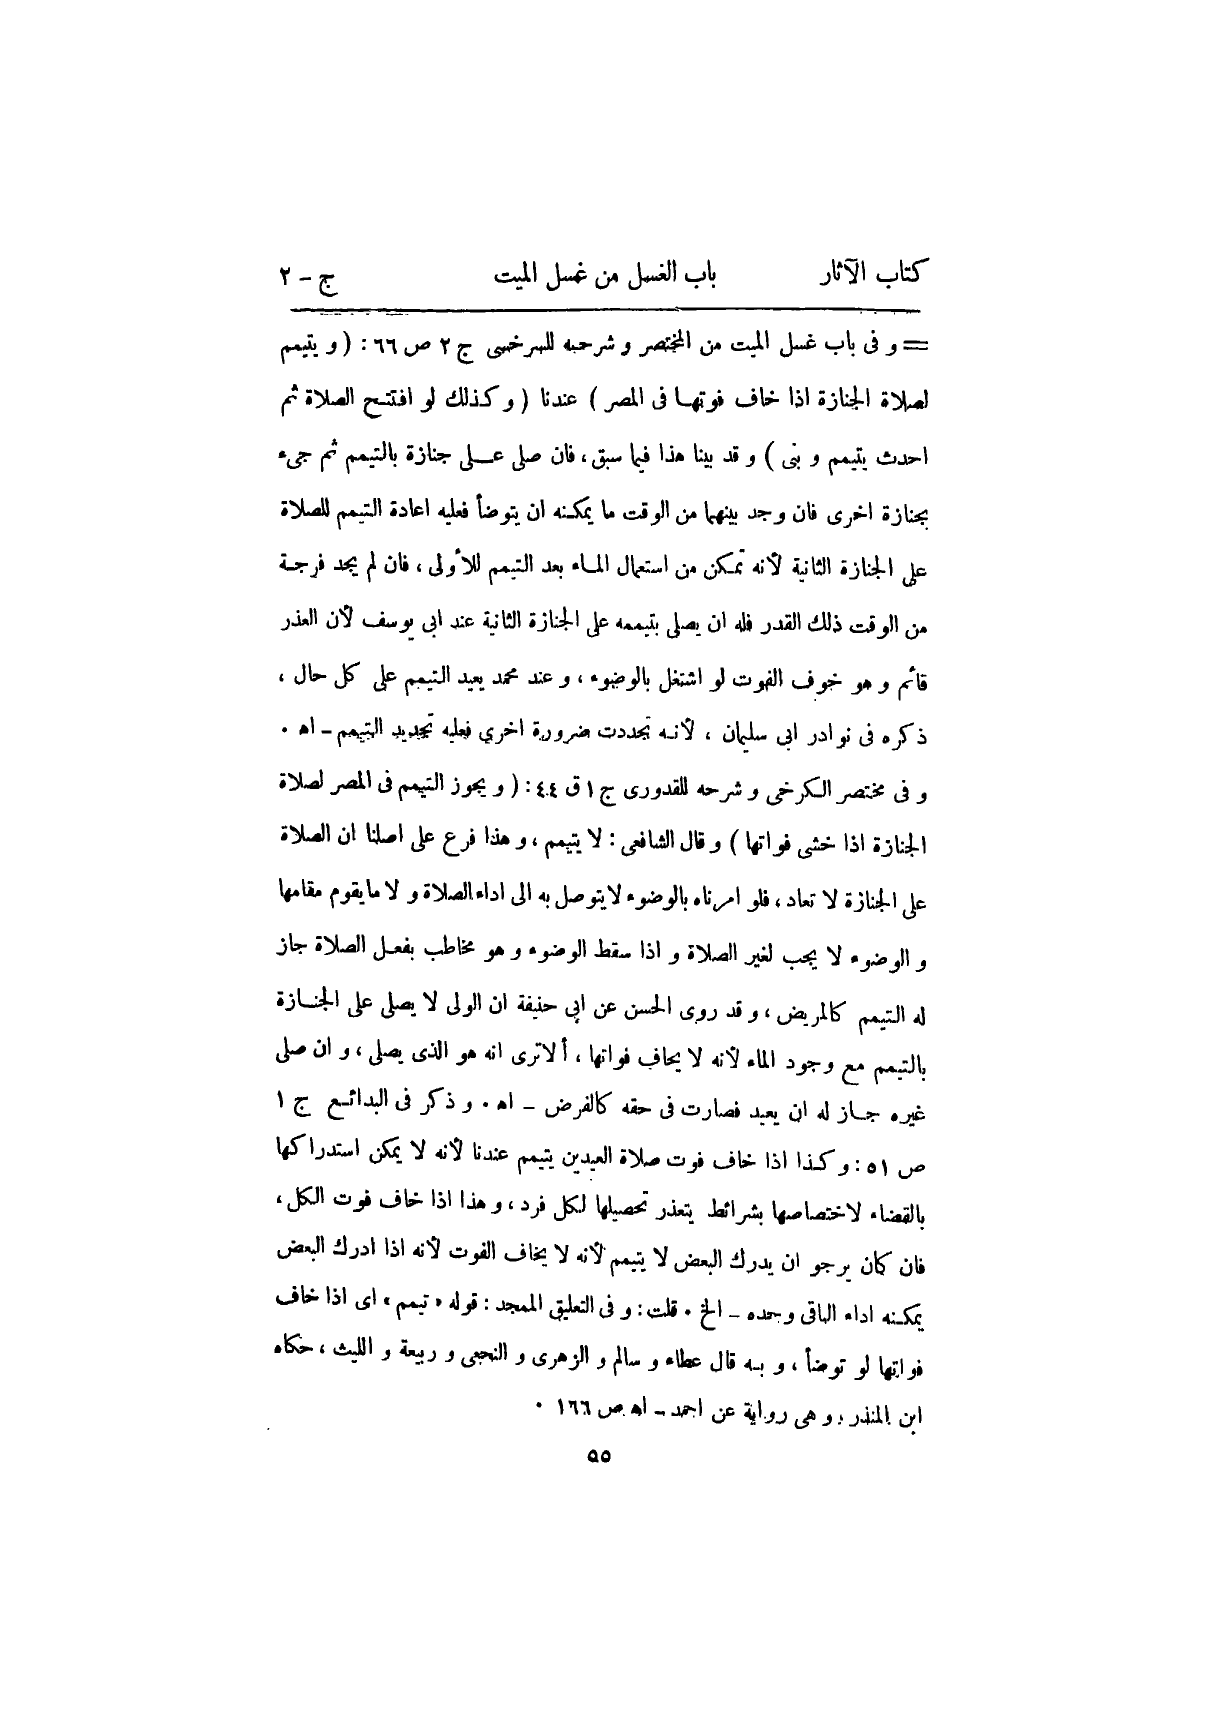 كتاب الآثار باب الغسل من غسل الميت ج - ٢
= و فى باب غسل الميت من المختصر و شرحه للسرخسى ج ٢ ص ٦٦ : ( و يتيمم
لصلاة الجنازة اذا خاف فوتها فى المصر ) عندنا ( و كذلك لو افتتح الصلاة ثم
احدث يتيمم و بنى ) و قد بينا هذا فيما سبق ، فان صلى على جنازة بالتيمم ثم جىء
بجنازة اخرى فان وجد بينهما من الوقت ما يمكنه ان يتوضأ فعليه اعادة التيمم للصلاة
على الجنازة الثانية لأنه تمكن من استعمال الماء بعد التيمم للأولى ، فان لم يجد فرجة
من الوقت ذلك القدر فله ان يصلى بتيممه على الجنازة الثانية عند ابى يوسف لأن العذر
قائم و هو خوف الفوت لو اشتغل بالوضوء ، و عند محمد يعيد التيمم على كل حال ،
ذكره فى نوادر ابى سليمان ، لأنه تجددت ضرورة اخرى فعليه تجديد التيمم - اه ٠
و فى مختصر الكرخى و شرحه للقدورى ج ١ ق ٤٤ : ( و يجوز التيمم فى المصر لصلاة
الجنازة اذا خشى فواتها ) و قال الشافعى : لا يتيمم ، و هذا فرع على اصلنا ان الصلاة
على الجنازة لا تعاد ، فلو امرناه بالوضوء لا يتوصل به الى اداء الصلاة و لا ما يقوم مقامها
و الوضوء لا يجب لغير الصلاة و اذا سقط الوضوء و هو مخاطب بفعل الصلاة جاز
له التيمم كالمريض ، و قد روى الحسن عن ابى حنيفة ان الولى لا يصلى على الجنازة
بالتيمم مع وجود الماء لأنه لا يخاف فواتها ، ألا ترى انه هو الذى يصلى ، و ان صلى
غيره جاز له ان يعيد فصارت فى حقه كالفرض - اه ٠ و ذكر فى البدائع ج ١
ص ٥١ : و كذا اذا خاف فوت صلاة العيدين يتيمم عندنا لأنه لا يمكن استدراكها
بالقضاء لاختصاصها بشرائط يتعذر تحصيلها لكل فرد ، و هذا اذا خاف فوت الكل ،
فان كان يرجو ان يدرك البعض لا يتيمم لأنه لا يخاف الفوت لأنه اذا ادرك البعض
يمكنه اداء الباقى وحده - الخ ٠ قلت : و فى التعليق الممجد : قوله « تيمم » اى اذا خاف
فواتها لو توضأ ، و به قال عطاء و سالم و الزهرى و النخعى و ربيعة و الليث ، حكاه
ابن المنذر ، و هى رواية عن احمد - اه ص ١٦٦ ٠
٥٥